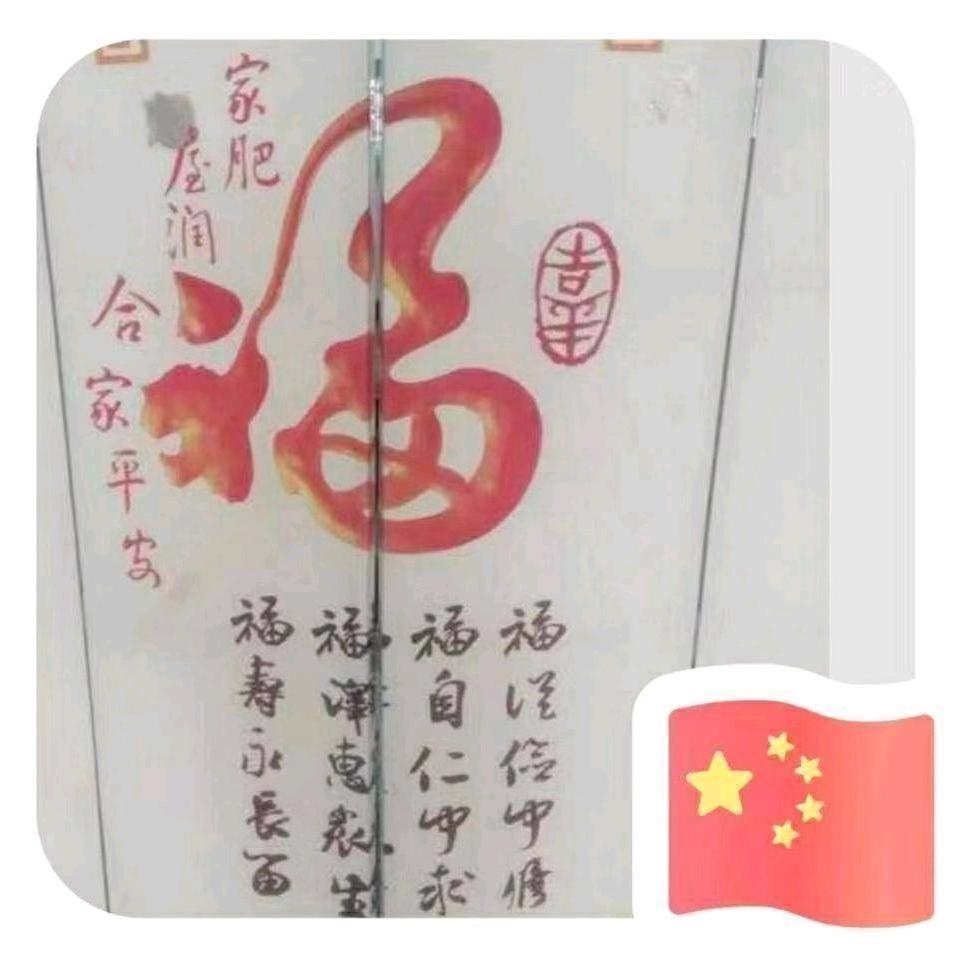 福
家肥
屋润
合家平安
福從俭中修
福自仁中求
福澤惠眾生
福寿永長留